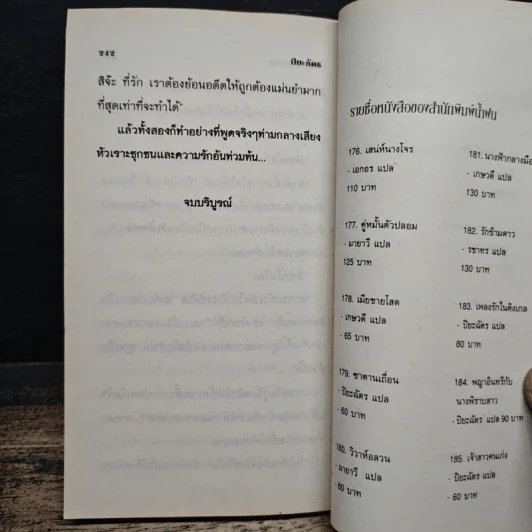 242
ปิยะภัตร
สิจ๊ะ ที่รัก เราต้องย้อนอดีตให้ถูกต้องแม่นยำมาก
ที่สุดเท่าที่จะทำได้"
แล้วทั้งสองก็ทำอย่างที่พูดจริงๆท่ามกลางเสียง
หัวเราะซุกซนและความรักอันท่วมท้น...
จบบริบูรณ์
รายชื่อหนังสือของสำนักพิมพ์น้ำฝน
176. เสน่ห์นางโจร
- เอกอร แปล
110 บาท
177. คู่หมั้นตัวปลอม
- มายาวี แปล
125 บาท
178. เมียชายโสด
- เกษวดี แปล
- 65 บาท
179. ซาตานเถื่อน
- ปิยะฉัตร แปล
- 60 บาท
180. วิวาห์อลวน
- มายาวี แปล
- 60 บาท
181. นางฟ้ากลางมือ
- เกษวดี แปล
130 บาท
182. รักข้ามดาว
- รชาทร แปล
130 บาท
183. เพลงรักในดิงเกล
- ปิยะฉัตร แปล
80 บาท
184. พญาอินทรีกับ
นางพิราบสาว
- ปิยะฉัตร แปล 90 บาท
185. เจ้าสาวคนเก่ง
- ปิยะฉัตร แปล
- 60 บาท